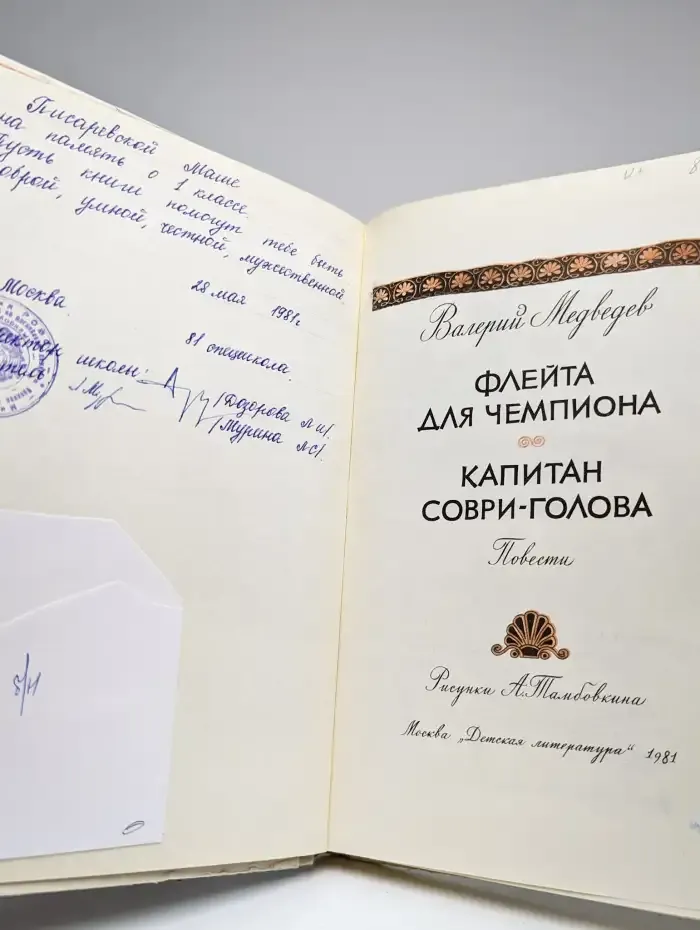 Писаревской Маше
на память о 1 классе.
Пусть книги помогут тебе быть
доброй, умной, честной, мужественной.
Москва. 28 мая 1981г.
81 спецшкола.
директор школы: /Дозорова Л И/.
/Мурина Л С/.
Б/Н
Валерий Медведев
ФЛЕЙТА
ДЛЯ ЧЕМПИОНА
КАПИТАН
СОВРИ-ГОЛОВА
Повести
Рисунки А. Тамбовкина
Москва „Детская литература“ 1981